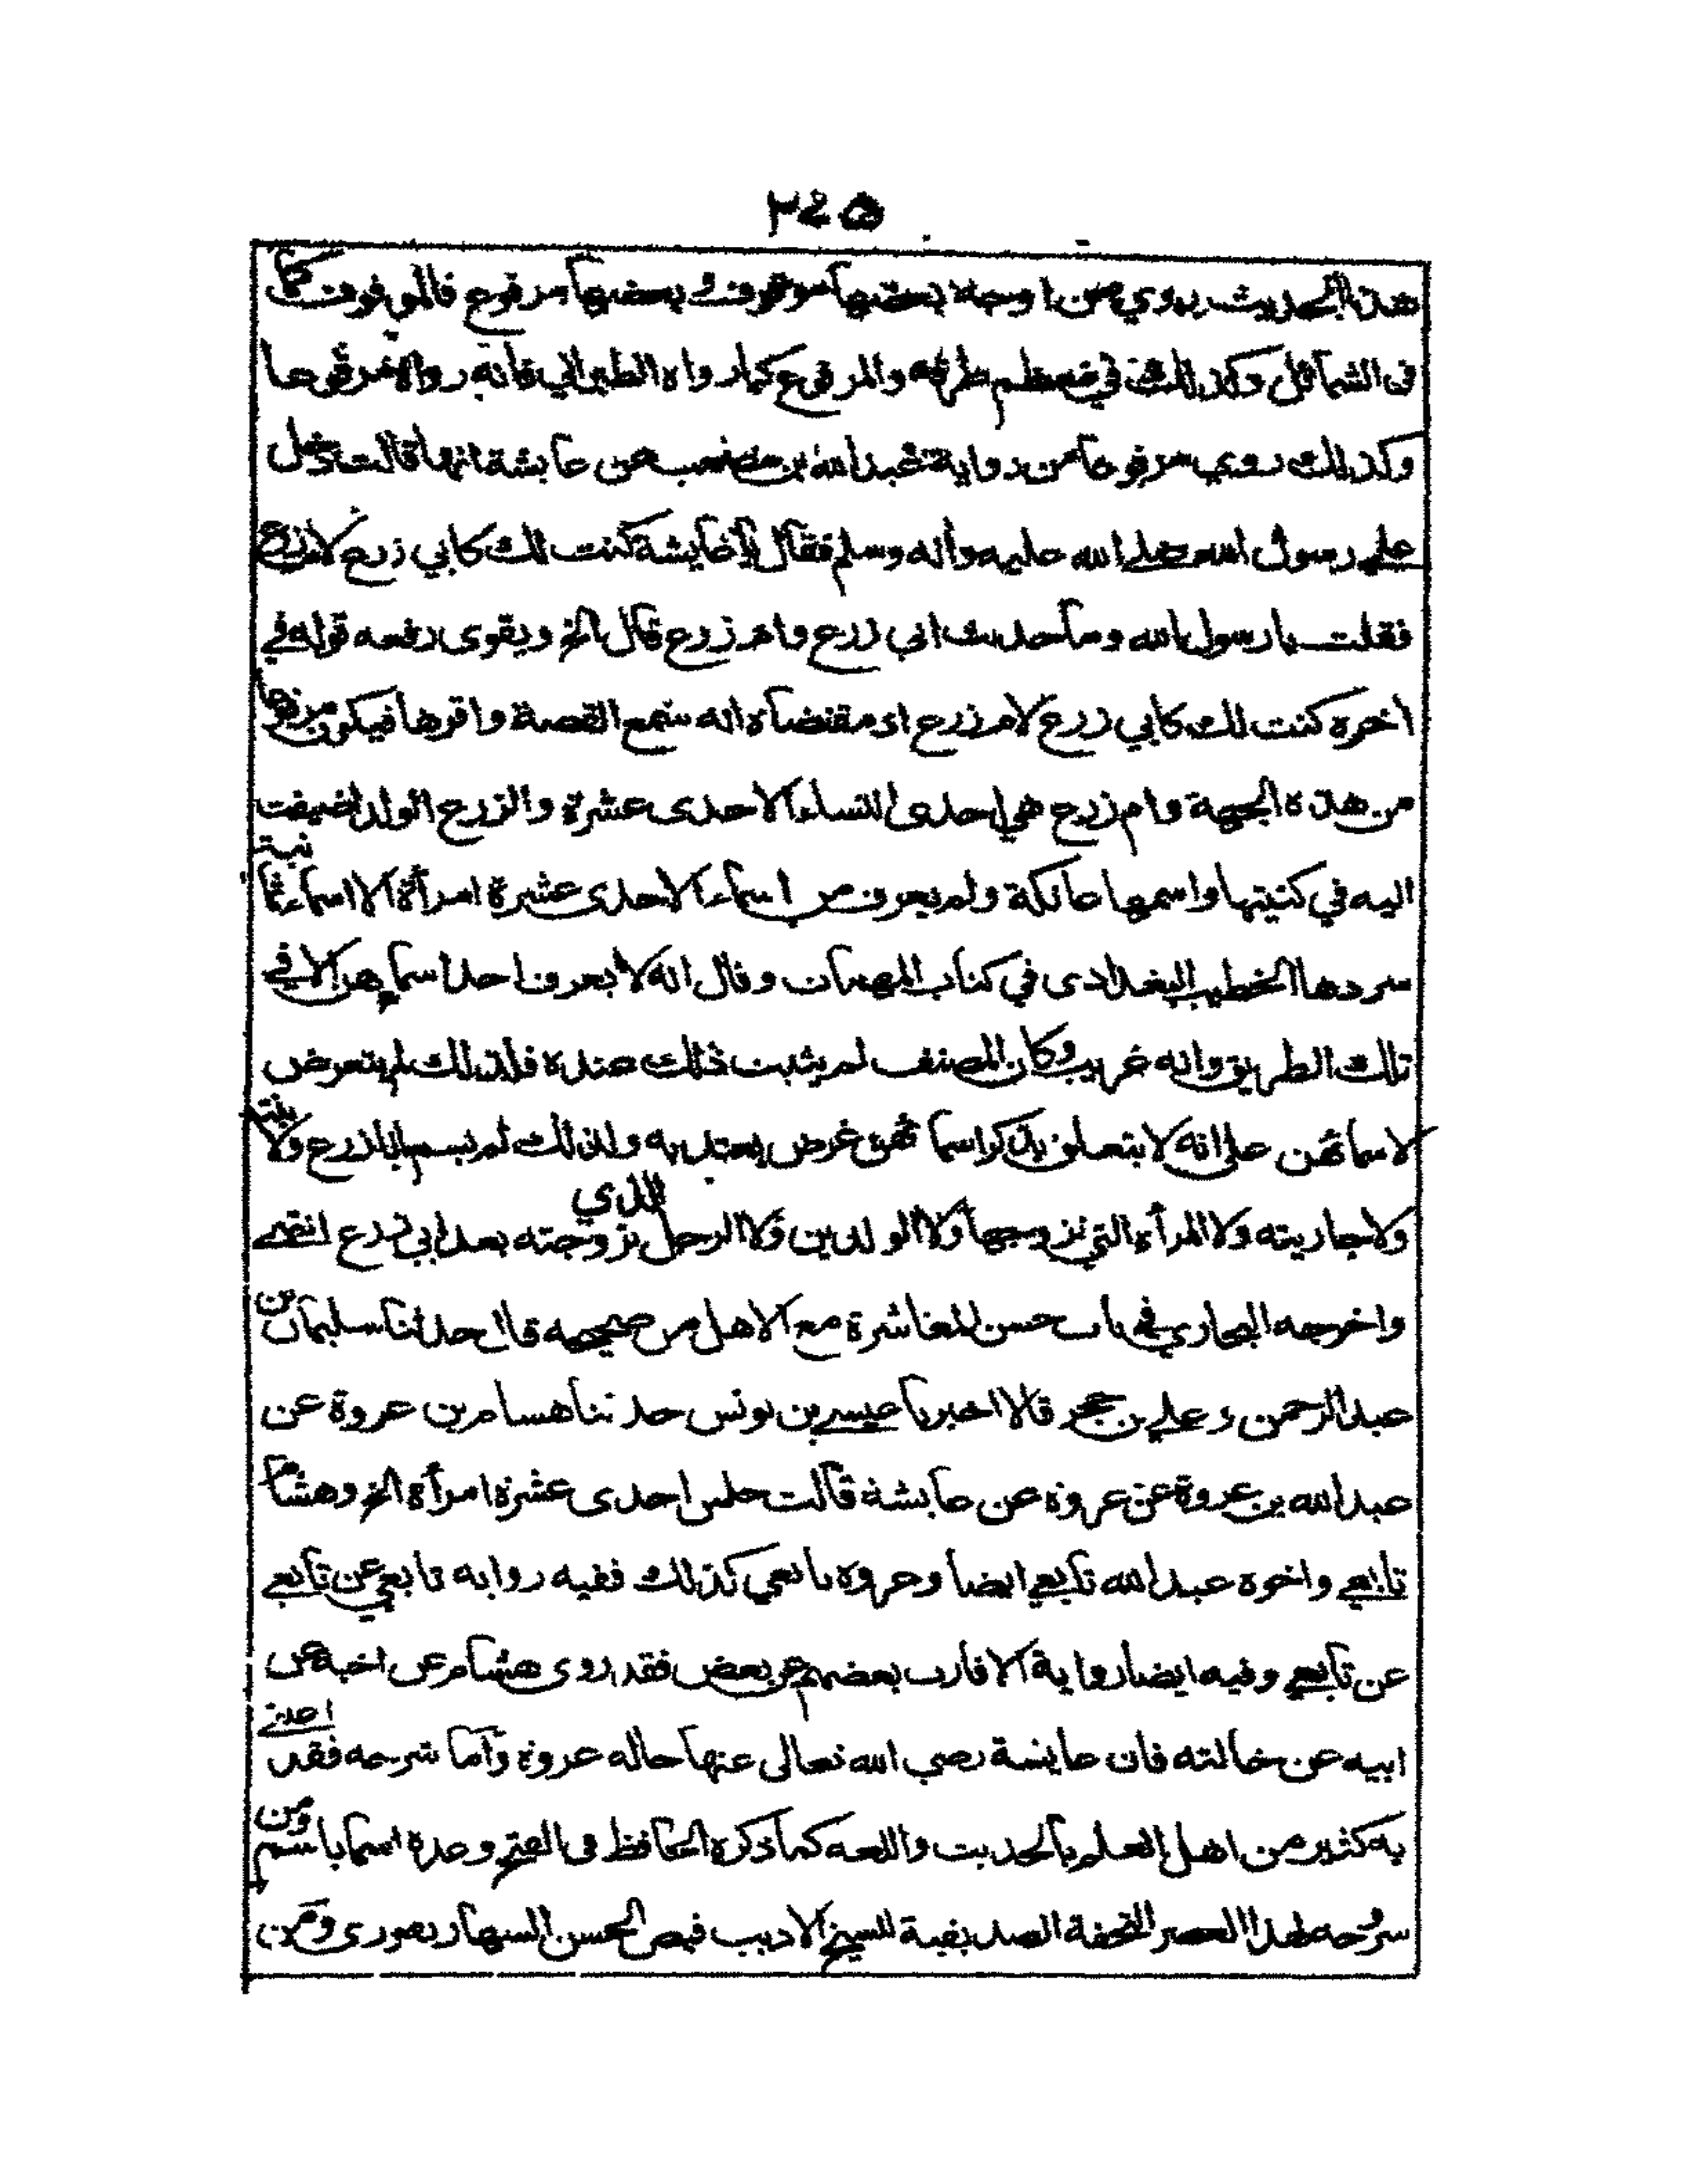 ٣٤٥
هذا الحديث يروى من اوجه بعضها موقوف و بعضها مرفوع فالموقوف كما
فى الشمائل وكذلك في معظم طرقه والمرفوع كما رواه الطبراني فانه رواه مرفوعا
وكذلك روي مرفوعا من رواية عبدالله بن مصعب عن عايشة انها قالت دخل
علي رسول الله صلى الله عليه وأله وسلم فقال يا عايشة كنت لك كابي زرع لام زرع
فقلت يا رسول الله وما حديث ابي زرع وام زرع قال الخ ويقوى رفعه قوله في
اخره كنت لك كابي زرع لام زرع اذ مقتضاه انه سمع القصة واقرها فيكون مرفوعا
من هذه الجهة وام زرع هي احدى النساء الاحدى عشرة والزرع الولد اضيفت
اليه في كنيتها واسمها عاتكة ولم يعرف من اسماء الاحدى عشرة امرأة الا اسماء ثمانية
سردها الخطيب البغدادى في كتاب المبهمات وقال انه لا يعرف احدا سماهن الا في
تلك الطريق وانه غريب وكان المصنف لم يثبت ذلك عنده فلذلك لم يتعرض
لاسمائهن على انه لا يتعلق بذكر اسمائهن غرض يعتد به ولذلك لم يسم ابا زرع ولا بنته
ولا جاريته ولا المرأة التي تزوجها ولا الولدين ولا الرجل الذي تزوجته بعد ابي زرع انتهى
واخرجه البخاري في باب حسن المعاشرة مع الاهل من صحيحه قال حدثنا سليمان بن
عبد الرحمن و علي بن حجر قالا اخبرنا عيسى بن يونس حدثنا هشام بن عروة عن
عبدالله بن عروة عن عروة عن عايشة قالت جلس احدى عشرة امرأة الخ وهشام
تابعي واخوه عبدالله تابعي ايضا وعروة تابعي كذلك ففيه رواية تابعي عن تابعي
عن تابعي وفيه ايضا رواية الاقارب بعضهم عن بعض فقد روى هشام عن اخيه عن
ابيه عن خالته فان عايشة رضي الله تعالى عنها خاله عروة وأما شرحه فقد اعتنى
به كثير من اهل العلم بالحديث واللغه كما ذكره الحافظ فى الفتح وعده اسما باسم ومن
شروحه لهذا العصر التحفة الصديقية للشيخ الاديب فيض الحسن السهارنفورى ومن